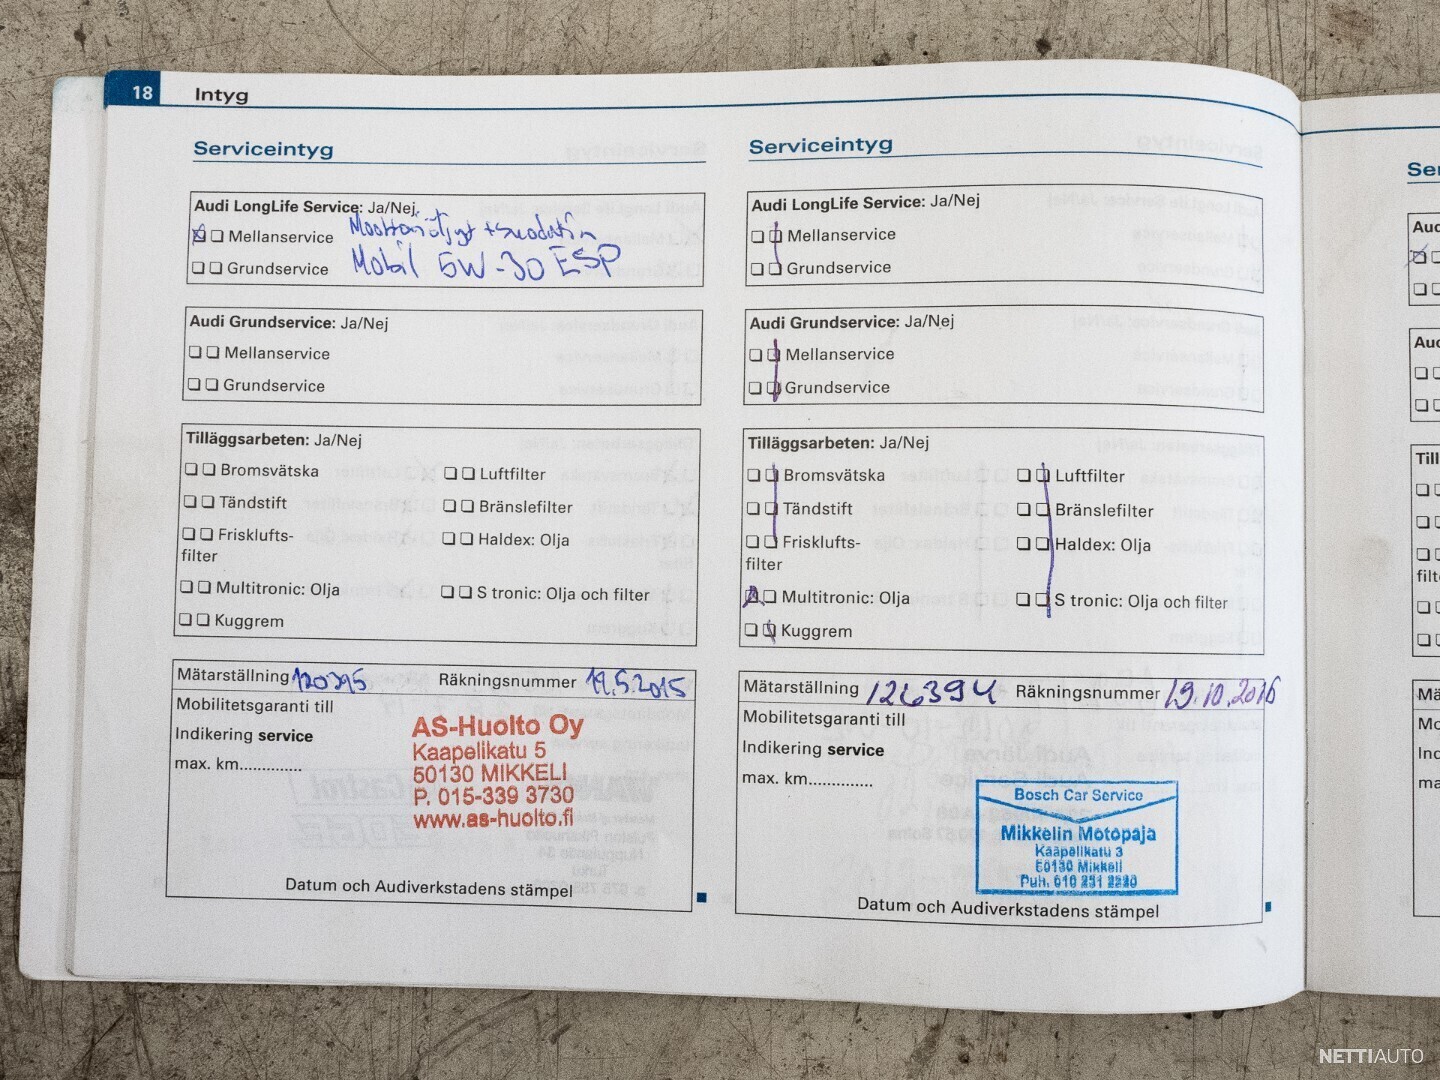 18 Intyg
Serviceintyg
Audi LongLife Service: Ja/Nej
Mellanservice
Moottoriöljyt + suodatin
Grundservice
Mobil 5W-30 ESP
Audi Grundservice: Ja/Nej
Mellanservice
Grundservice
Tilläggsarbeten: Ja/Nej
Bromsvätska
Luftfilter
Tändstift
Bränslefilter
Frisklufts-
filter
Haldex: Olja
Multitronic: Olja
S tronic: Olja och filter
Kuggrem
Mätarställning 120395 Räkningsnummer 19.5.2015
Mobilitetsgaranti till
Indikering service
max. km..............
AS-Huolto Oy
Kaapelikatu 5
50130 MIKKELI
P. 015-339 3730
www.as-huolto.fi
Datum och Audiverkstadens stämpel
Serviceintyg
Audi LongLife Service: Ja/Nej
Mellanservice
Grundservice
Audi Grundservice: Ja/Nej
Mellanservice
Grundservice
Tilläggsarbeten: Ja/Nej
Bromsvätska
Luftfilter
Tändstift
Bränslefilter
Frisklufts-
filter
Haldex: Olja
Multitronic: Olja
S tronic: Olja och filter
Kuggrem
Mätarställning 126394 Räkningsnummer 19.10.2016
Mobilitetsgaranti till
Indikering service
max. km..............
Bosch Car Service
Mikkelin Motopaja
Kaapelikatu 3
50130 Mikkeli
Puh. 010 231 2220
Datum och Audiverkstadens stämpel
NETTIAUTO